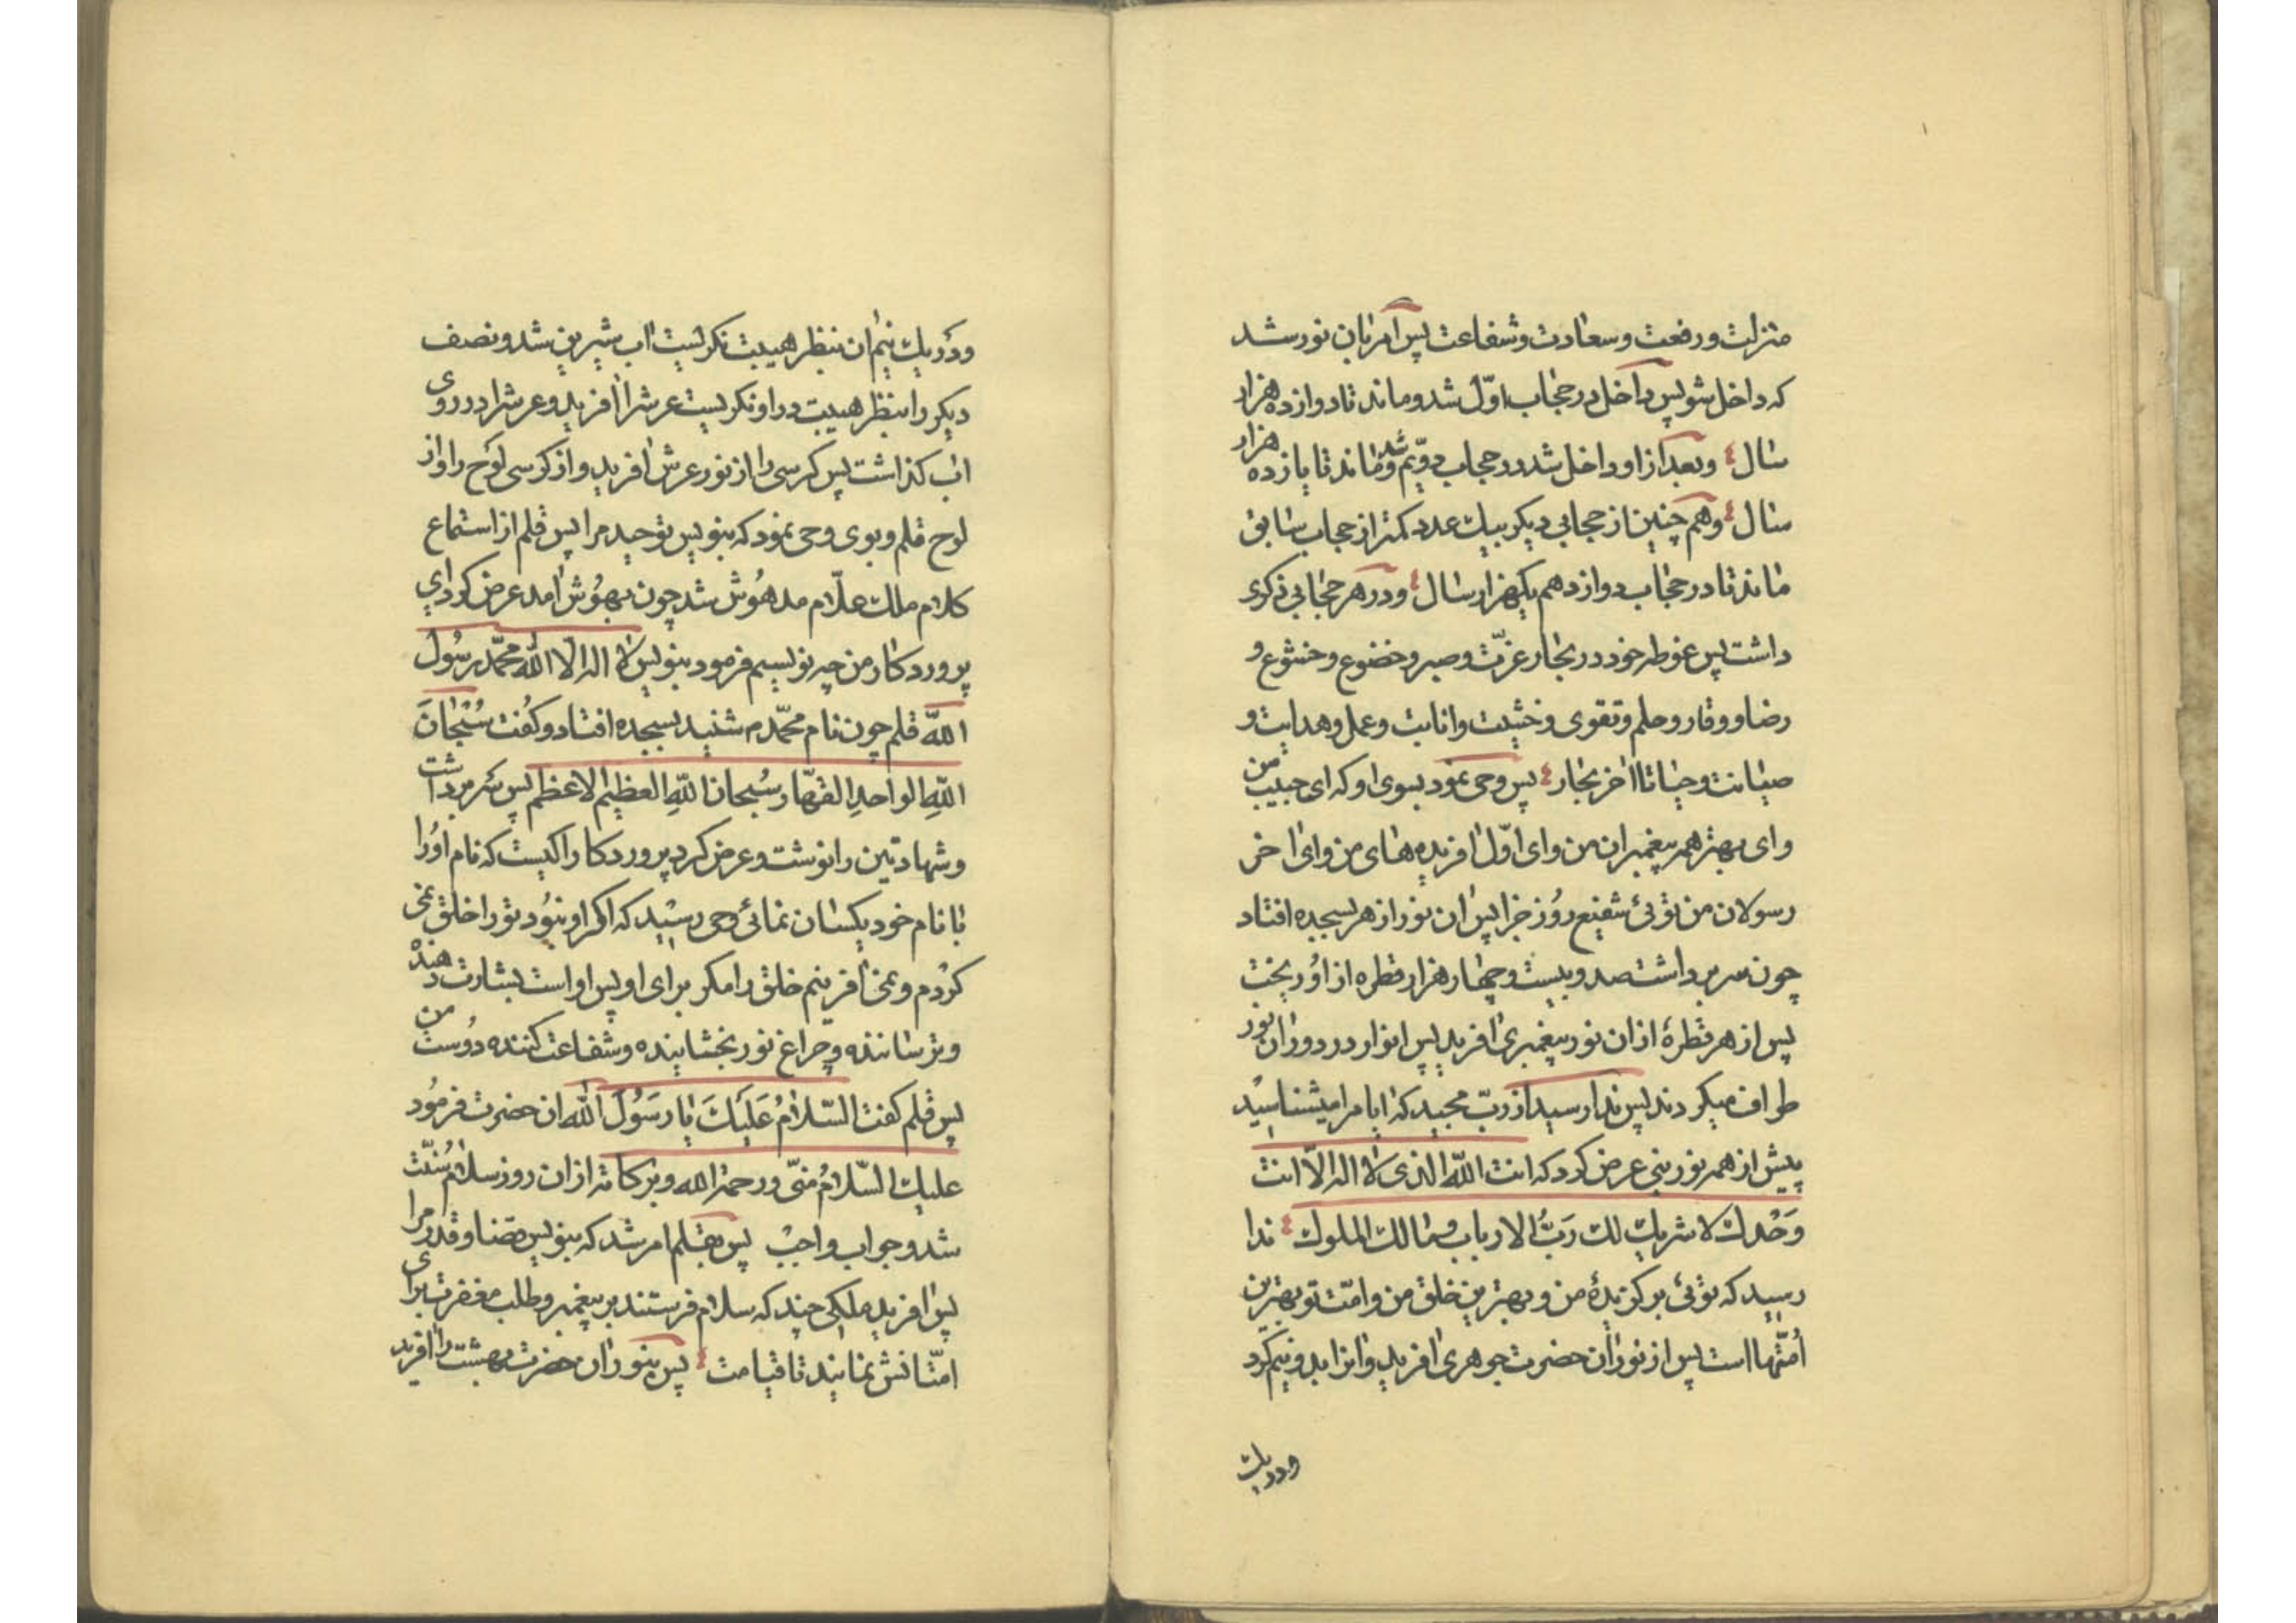 منزلت و رفعت و سعادت و شفاعت پس امر بان نور شد
که داخل شو پس داخل در حجاب اوّل شد و ماند تا دوازده هزار
سال و بعد از او داخل شد در حجاب دوّیم شد و ماند تا یازده هزار
سال و هم چنین از حجابی دیکر بیک عدد کمتر از حجاب سابق
ماند تا در حجاب دوازدهم یکهزار سال و در هر حجابی ذکری
داشت پس غوطه خود در بحار عزّت و صبر و خضوع و خشوع و
رضا و وقار و حلم و تقوی و خشیت و انابت و عمل و هدایت و
صیانت و حیا تا اخر بحار پس وحی نمود بسوی او که ای حبیب من
و ای بهتر همه پیغمبران من و ای اوّل افریده های من و ای اخر
رسولان من توئی شفیع روز جزا پس ان نور از هر بسجده افتاد
چون سر برداشت صد و بیست و چهار هزار قطره از او ریخت
پس از هر قطرهٔ ازان نور پیغمبری افرید پس انوار در دوران نور
طواف میکردند پس ندا رسید از ربّ مجید که ایا مرا میشناسید
پیش از همه نور نبی عرض کرد که انت اللّه الذی لا اله الّا انت
وَحْدك لا شریك لك رَبُّ الارباب و مالك الملوك ندا
رسید که توئی برکزیدهٔ من و بهترین خلق من و امّت تو بهترین
اُمّتها است پس از نور ان حضرت جوهری افرید و انرا بدو نیم کرد
و در یك
و در یك نیم ان بنظر هیبت نکریست اب شیرین شد و نصف
دیکر را بنظر هیبت در او نکریست عرش را افرید و عرش را در روی
اب کذاشت پس کرسی را از نور عرش افرید و از کرسی لوح را و از
لوح قلم و بوی وحی نمود که بنویس توحید مرا پس قلم از استماع
کلام ملك علّام مدهُوش شد چون بهوش امد عرض کرد ای
پروردکار من چه نویسم فرمود بنویس لا اله الّا اللّه محمّد رسُول
اللّه قلم چون نام محمّد م شنید بسجده افتاد و کفت سُبْحانَ
اللّهِ الواحدِ القهّار سُبحان اللّهِ العظیم الاعظم پس سر برداشت
و شهادتین را نوشت و عرض کرد پروردکارا کیست که نام اورا
با نام خود یکسان نمائی وحی رسید که اکر او نبود تو را خلق نمی
کردم و نمی افرینم خلق را مکر برای او پس او است بشارت دهنده
و ترساننده و چراغ نور بخشاینده و شفاعت کننده دوست من
پس قلم کفت السّلامُ عَلَیكَ یا رَسُولَ اللّه ان حضرت فرمود
علیك السّلامُ منّی و رحمة الله و برکاته ازان روز سلام سُنّت
شد و جواب واجبْ پس بقلم امر شد که بنویس قضا و قدر مرا
پس افرید ملکی چند که سلام فرستند بر پیغمبر و طلب مغفرت برای
امّتانش نمایند تا قیامت پس بنور ان حضرت بهشت را افرید